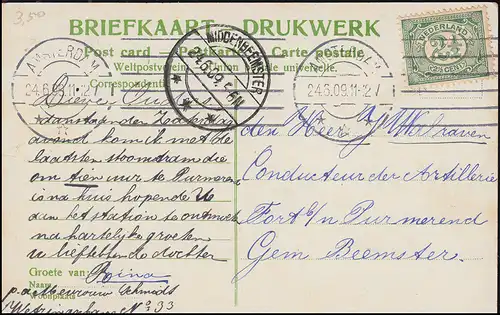 3,50
BRIEFKAART - DRUKWERK
Post card Carte postale
Weltpostverein Union universelle.
Correspondentie
AMSTERDAM
24.6.09.11-12V
MIDDENBEEMSTER
24.6.09. 5-6N
AMSTERDAM
24.6.09.11-12V
NEDERLAND
2½
CENT
Lieve Ouders
aanstaanden Zaterdag
avond kom ik met de
laatsten stoomtram die
om tien uur te Purmerend
is na huis hopende U
aan het station te ontmoeten
na hartelijke groeten
u liefhebbende dochter
Groete van:
Naam
Woonplaats
p.a. Mevrouw Schmidt
Weteringschans No 33
den Heer J Walraven
Conducteur der Artillerie
Fort b/n Purmerend
Gem Beemster